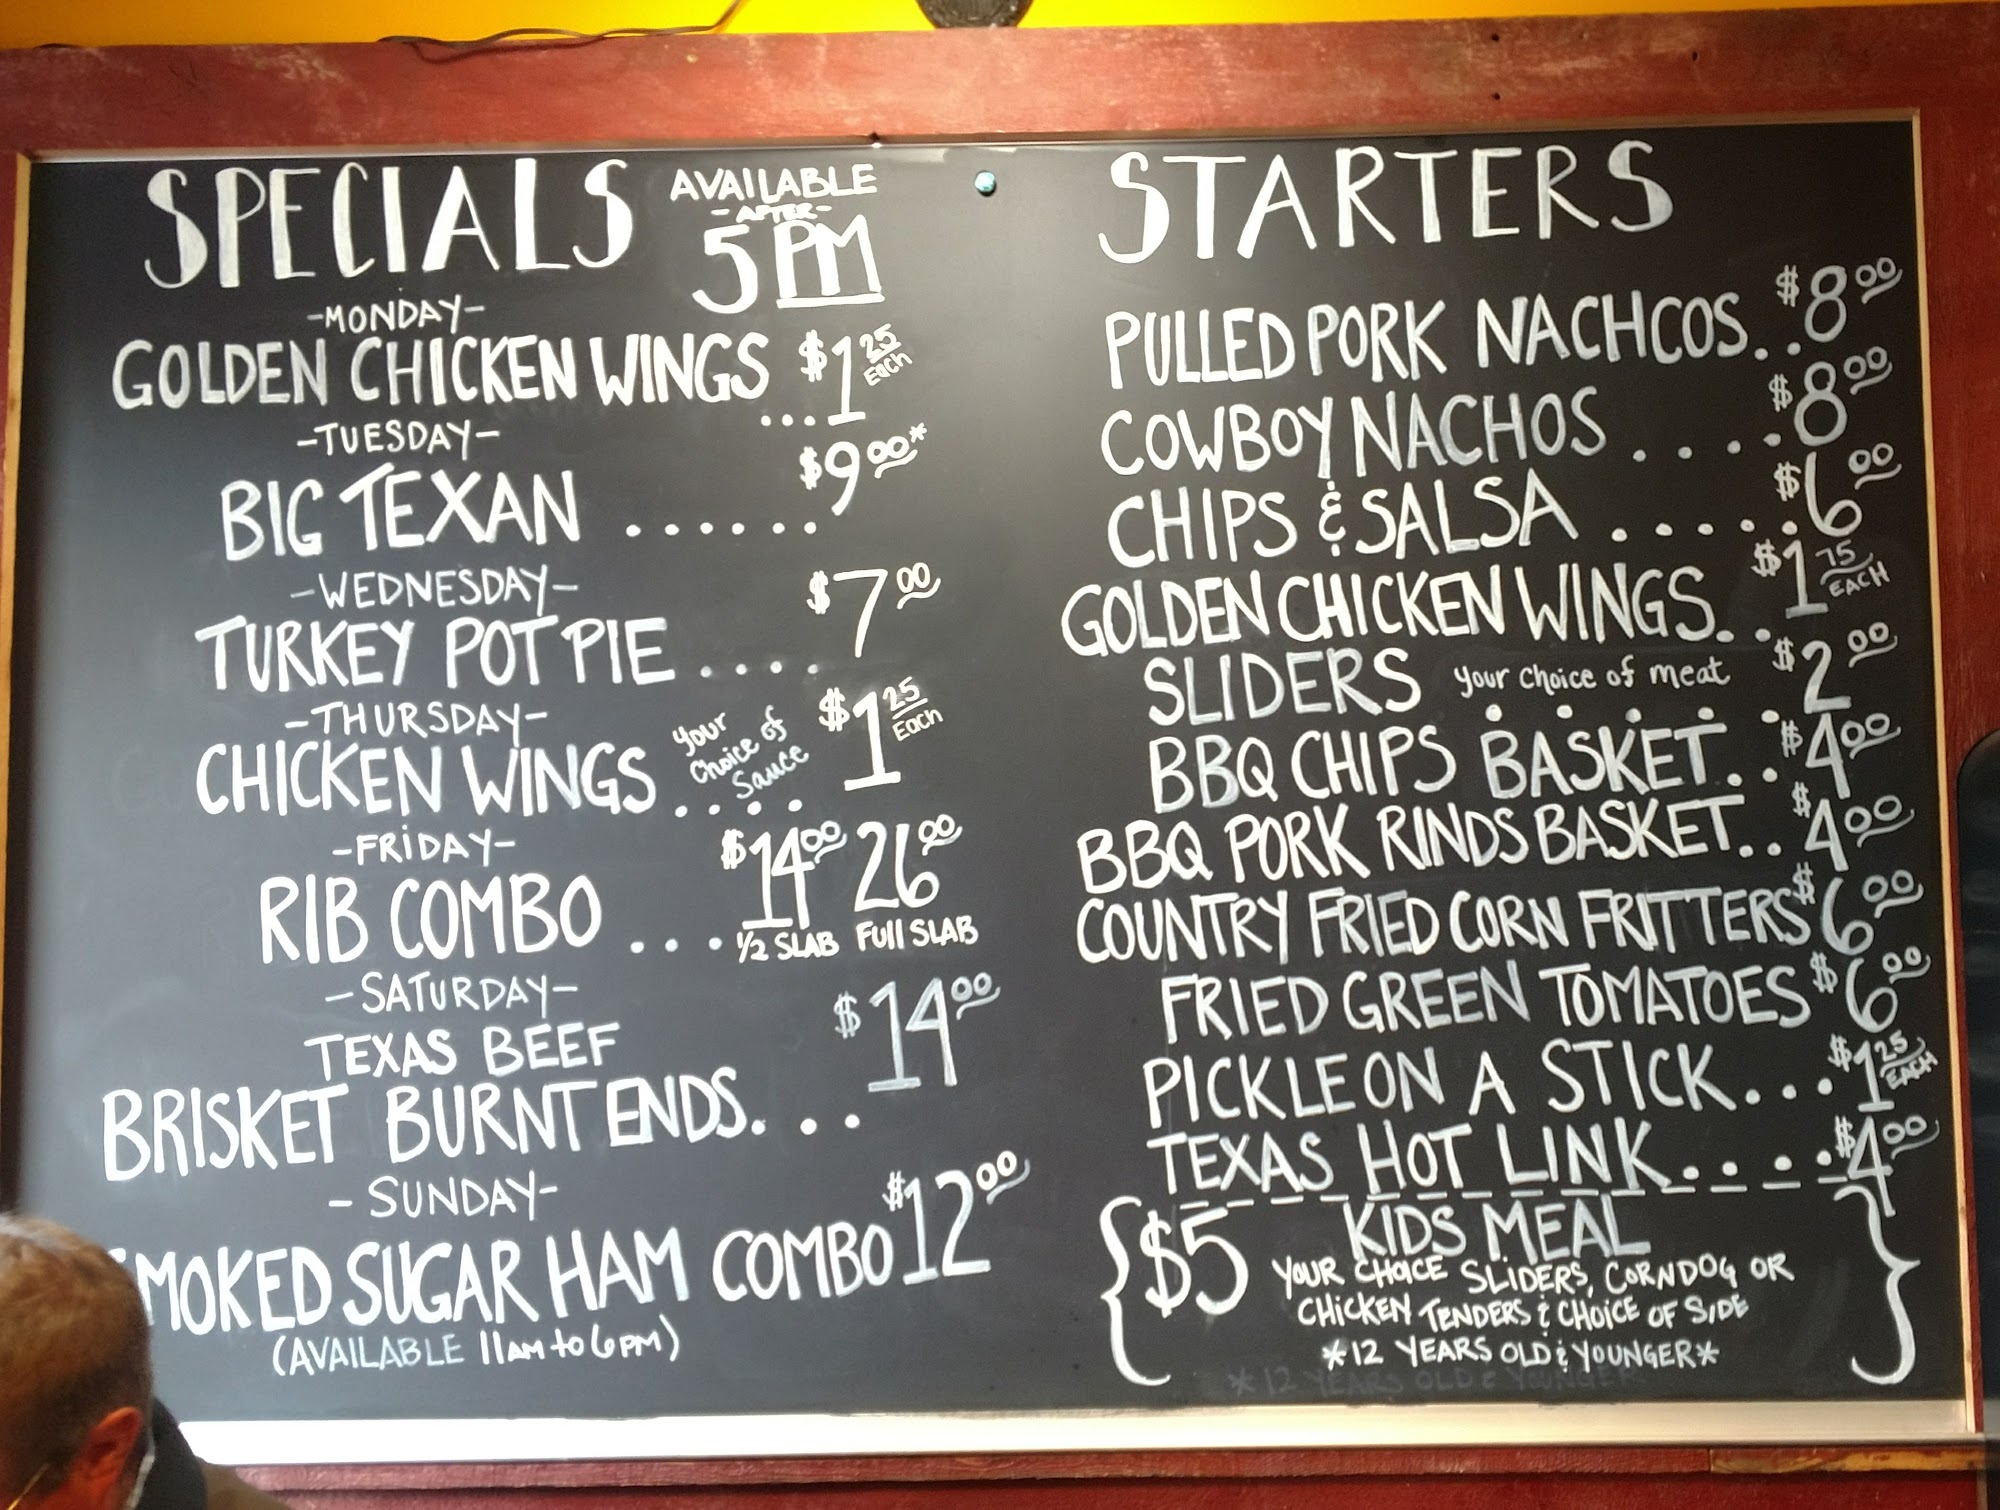 SPECIALS AVAILABLE
-AFTER-
5 PM
-MONDAY-
GOLDEN CHICKEN WINGS ... $1 25 Each
-TUESDAY-
BIG TEXAN ...... $9 00*
-WEDNESDAY-
TURKEY POT PIE .... $7 00
-THURSDAY-
CHICKEN WINGS Your Choice of Sauce .... $1 25 Each
-FRIDAY-
RIB COMBO ... $14 00 26 00
1/2 SLAB FUll SLAB
-SATURDAY-
TEXAS BEEF
BRISKET BURNT ENDS... $14 00
-SUNDAY-
SMOKED SUGAR HAM COMBO $12 00
(AVAILABLE 11AM to 6PM)
STARTERS
PULLED PORK NACHCOS.. $8 00
COWBOY NACHOS .... $8 00
CHIPS & SALSA ..... $6 00
GOLDEN CHICKEN WINGS.. $1 75 EACH
SLIDERS your choice of meat ..... $2 00
BBQ CHIPS BASKET.. $4 00
BBQ PORK RINDS BASKET.. $4 00
COUNTRY FRIED CORN FRITTERS $6 00
FRIED GREEN TOMATOES $6 00
PICKLE ON A STICK... $1 25 EACH
TEXAS HOT LINK..... $4 00
$5 KIDS MEAL
YOUR CHOICE SLIDERS, CORNDOG OR
CHICKEN TENDERS & CHOICE OF SIDE
*12 YEARS OLD & YOUNGER*
*12 YEARS OLD & YOUNGER